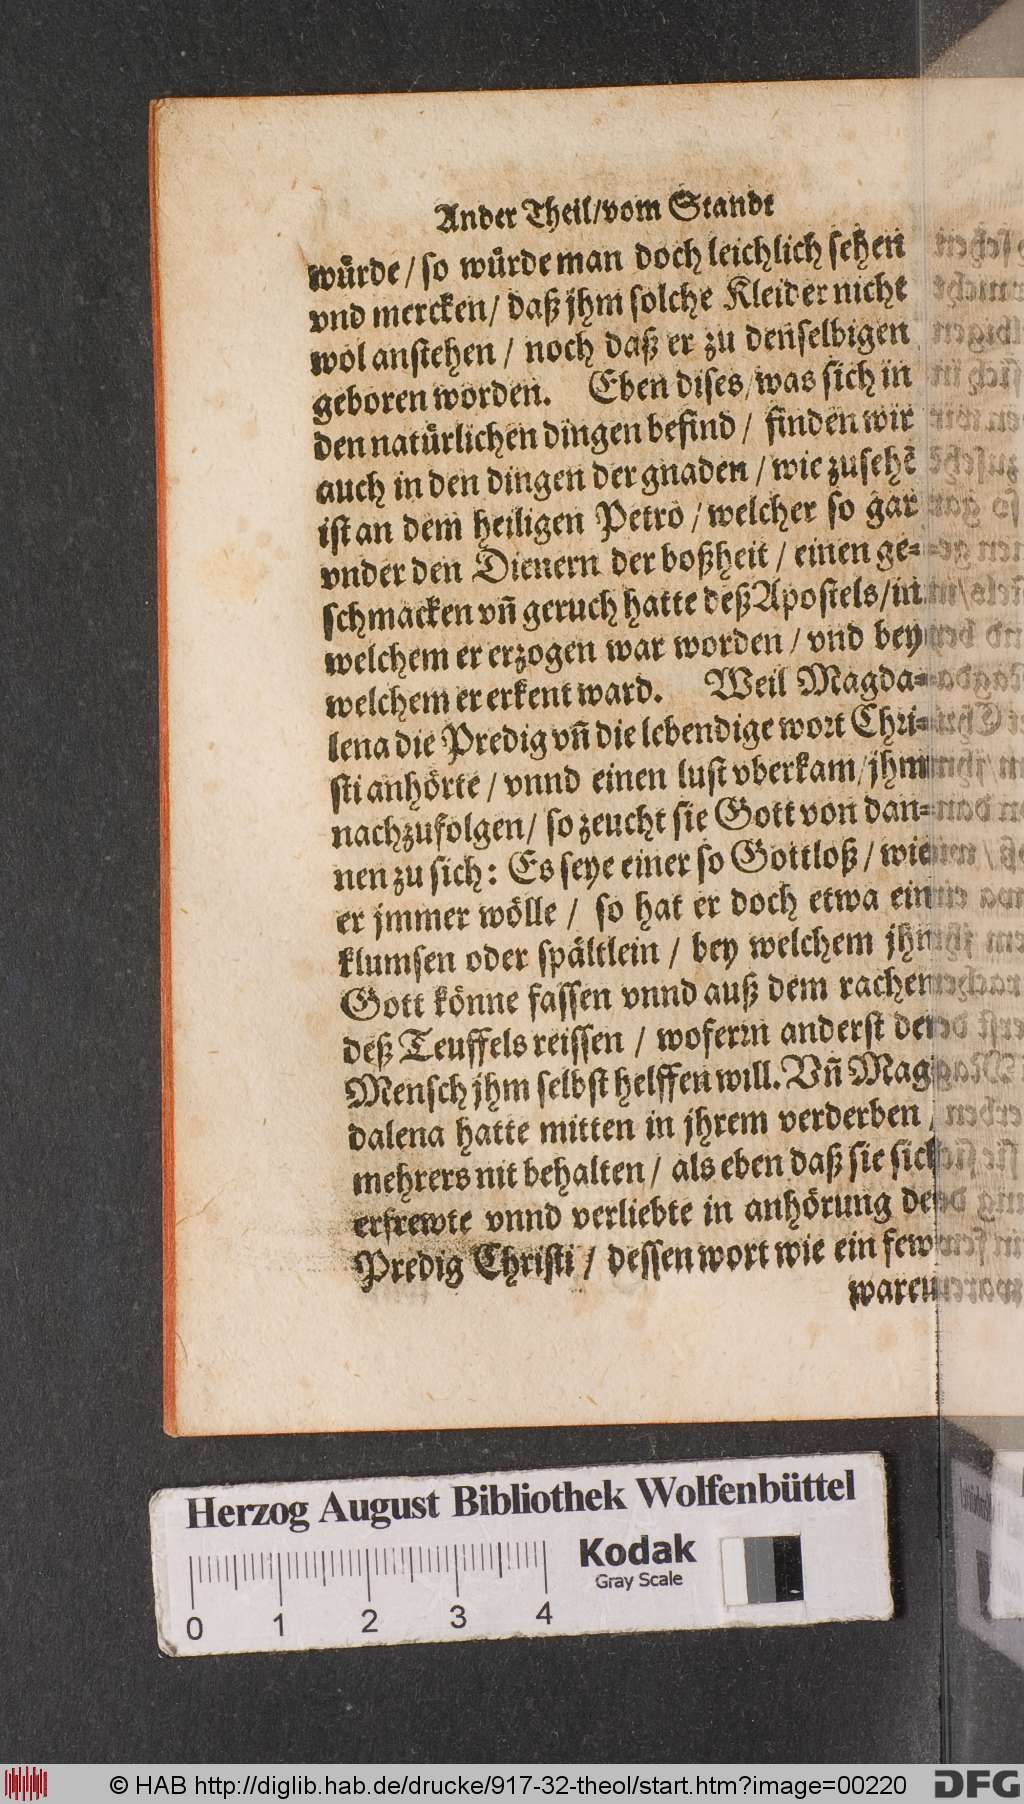 Ander Theil/vom Standt
würde/ so würde man doch leichlich sehen
vnd mercken/ daß jhm solche Kleider nicht
wol anstehen / noch daß er zu denselbigen
geboren worden. Eben dises/was sich in
den natürlichen dingen befind / finden wir
auch in den dingen der gnaden / wie zusehẽ
ist an dem heiligen Petro / welcher so gar
vnder den Dienern der boßheit / einen ge-
schmacken vñ geruch hatte deß Apostels/in
welchem er erzogen war worden / vnd bey
welchem er erkent ward. Weil Magda-
lena die Predig vñ die lebendige wort Chri-
sti anhörte / vnnd einen lust vberkam/jhm
nachzufolgen/ so zeucht sie Gott von dan-
nen zu sich: Es seye einer so Gottloß / wie
er jmmer wölle / so hat er doch etwa ein
klumsen oder spältlein / bey welchem jhn
Gott könne fassen vnnd auß dem rachen
deß Teuffels reissen / woferrn anderst der
Mensch jhm selbst helffen will. Vñ Mag
dalena hatte mitten in jhrem verderben /
mehrers nit behalten / als eben daß sie sich
erfrewte vnnd verliebte in anhörung der
Predig Christi / dessen wort wie ein fewr
waren
Herzog August Bibliothek Wolfenbüttel
Kodak
Gray Scale
0 1 2 3 4
© HAB http://diglib.hab.de/drucke/917-32-theol/start.htm?image=00220
DFG